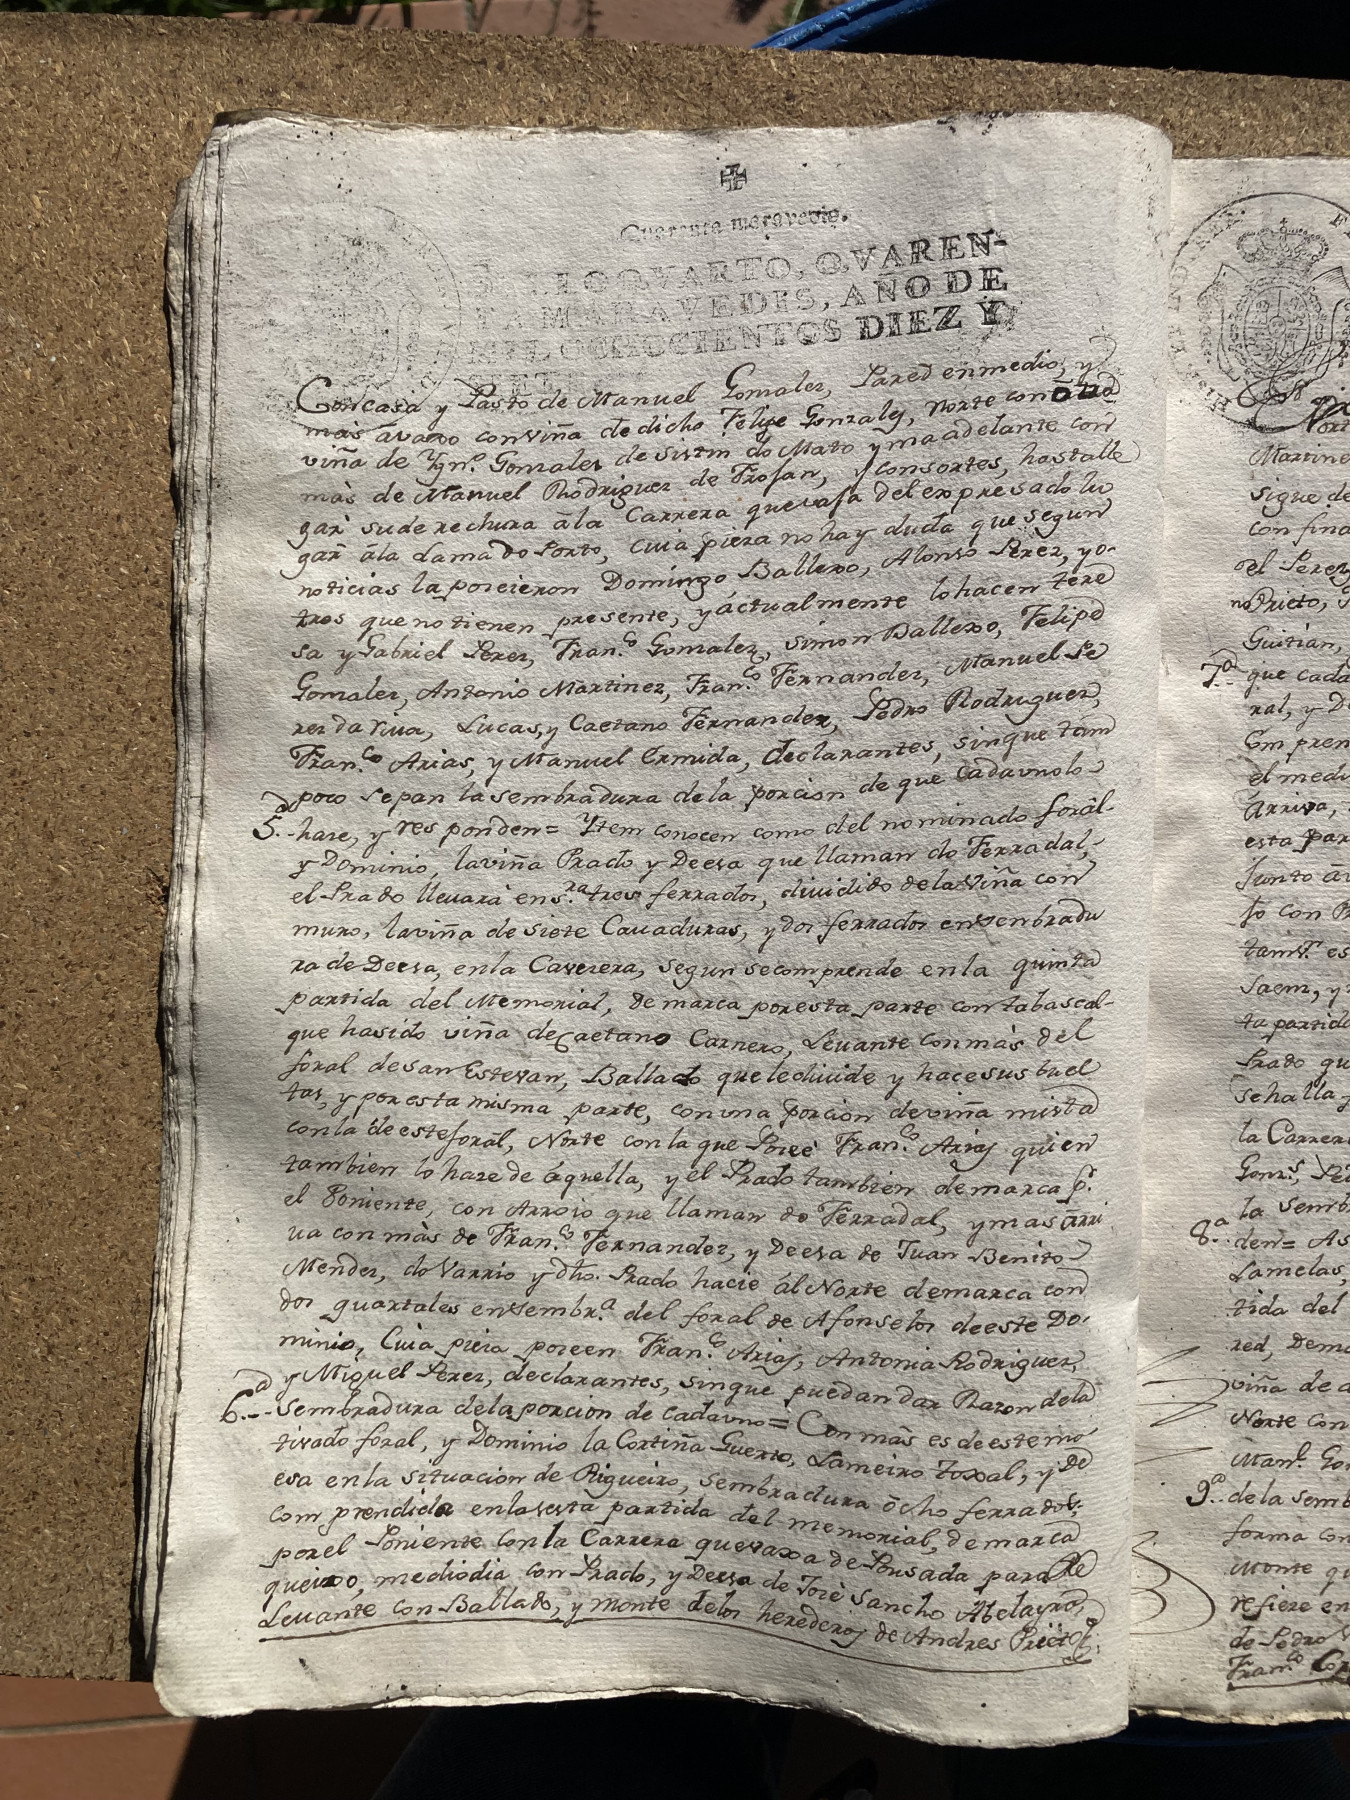 Quarenta maravedis.
SELLO QVARTO, QVAREN-
TA MARAVEDIS, AÑO DE
MIL OCHOCIENTOS DIEZ Y
SIETE.
Con casa y Pasto de Manuel Gonzalez, Pared en medio, y
más ávaxo con viña de dicho Felipe Gonzalez, Norte con otra
viña de Ygn.º Gonzalez de Sistin do Mato y má adelante con
más de Manuel Rodriguez de Frojan, y consortes, hasta lle
gar su derechura ála Carrera que vaja del expresado lu
gar ála Lama do Porto, cuia pieza no hay duda que segun
noticias la poseieron Domingo Ballexo, Alonso Perez, y o-
tros que no tienen presente, y áctualmente lo hacen Tere
sa y Gabriel Perez, Fran.co Gonzalez, Simon Ballexo, Felipe
Gonzalez, Antonio Martinez, Fran.co Fernandez, Manuel Pe
rez da Viña, Lucas, y Caetano Fernandez, Pedro Rodriguez,
Fran.co Arias, y Manuel Ermida, declarantes, sin que tam
poco sepan la sembradura de la porcion de que cada uno lo
5.a haze, y responden = Ytem conocen como del nominado foral
y Dominio, la viña Prado y Deesa que llaman do Ferradal,
el Prado llevará en s.ra tres ferrados, dividido de la Viña con
muro, la viña de siete Cavaduras, y dos ferrados en sembradu
ra de Deesa, en la Cavezera, segun se comprende en la quinta
partida del Memorial, demarca por esta parte con tabascal
que ha sido viña de Caetano Carnero, Levante con más del
foral de San Estevan, Ballado que le divide y hace sus buel
tas, y por esta misma parte, con una porcion de viña mista
con la de este forál, Norte con la que Poseé Fran.co Arias quien
tambien lo haze de áquella, y el Prado tambien demarca p.r
el Poniente, con Arroio que llaman do Ferradal, y mas árri
va con màs de Fran.co Fernandez, y Deesa de Juan Benito
Mendez, do Varrio y dho. Prado hacie ál Norte demarca con
dos quartales en sembr.a del foral de Afonselos de este Do-
minio, Cuia pieza poseen Fran.co Arias, Antonia Rodriguez,
y Miguel Perez, declarantes, sin que puedan dar Razon de la
6.a sembradura de la porcion de cada uno = Con más es de este mo
tivado foral, y Dominio la Cortiña Guerto, Lameiro Toxal, y De
esa en la situacion de Rigueiro, sembradura ócho ferrados,
comprendida en la sesta partida del memorial, demarca
por el Poniente con la Carrera que vaxa de Pousada para Re
queixo, mediodia con Prado, y Deesa de José Sancho Abelayra,
Levante con Ballado, y monte de los herederos de Andres Prieto
Martine
sigue de
con fina
el Perez
no Prieto,
Guitian,
7.a que cada
ral, y D
Com pren
el medi
Arriva,
esta par
Junto á
so con P
tam.n es
Saem, y
ta partida
Prado qu
se halla
la Carrer
Gonz.s, Pe
la sembr
8.a den = As
Lamelas,
tida del
red, Dema
viña de
Norte con
Man.l Go
9.a de la semb
forma con
Monte qu
refiere en
de Pedro
Fran.co